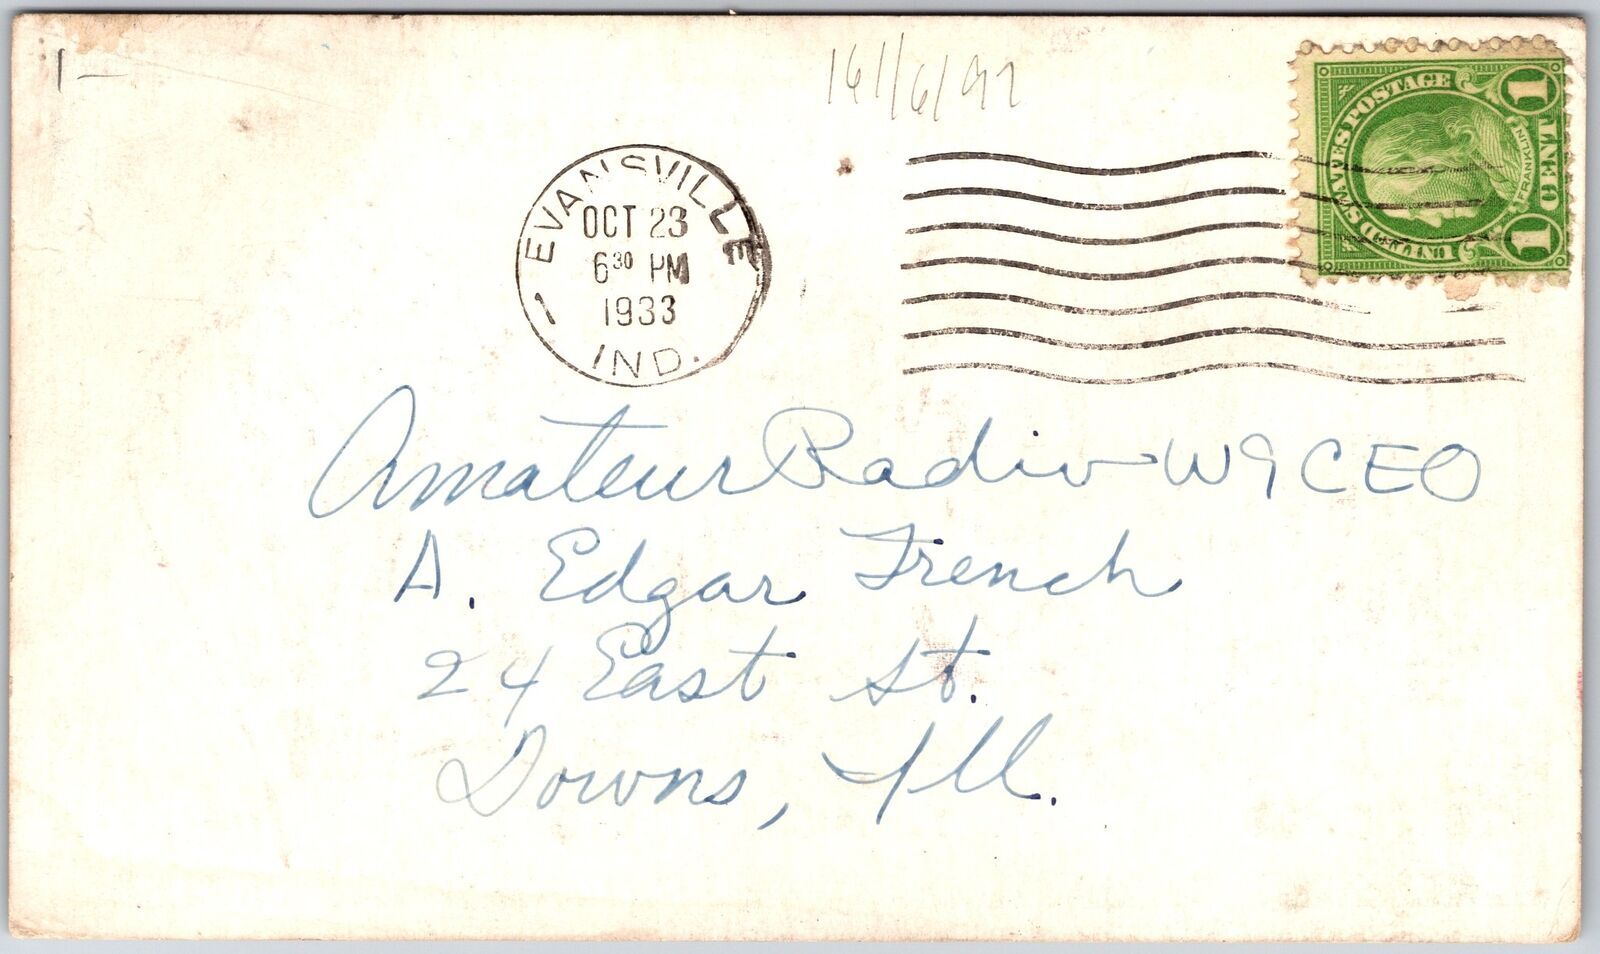 1 —
161/6/97
EVANSVILLE
OCT 23
6³⁰ PM
1933
IND.
UNITED STATES POSTAGE
FRANKLIN
1 ONE 1
Amateur Radio - W9CEO
A. Edgar French
24 East St.
Downs, Ill.